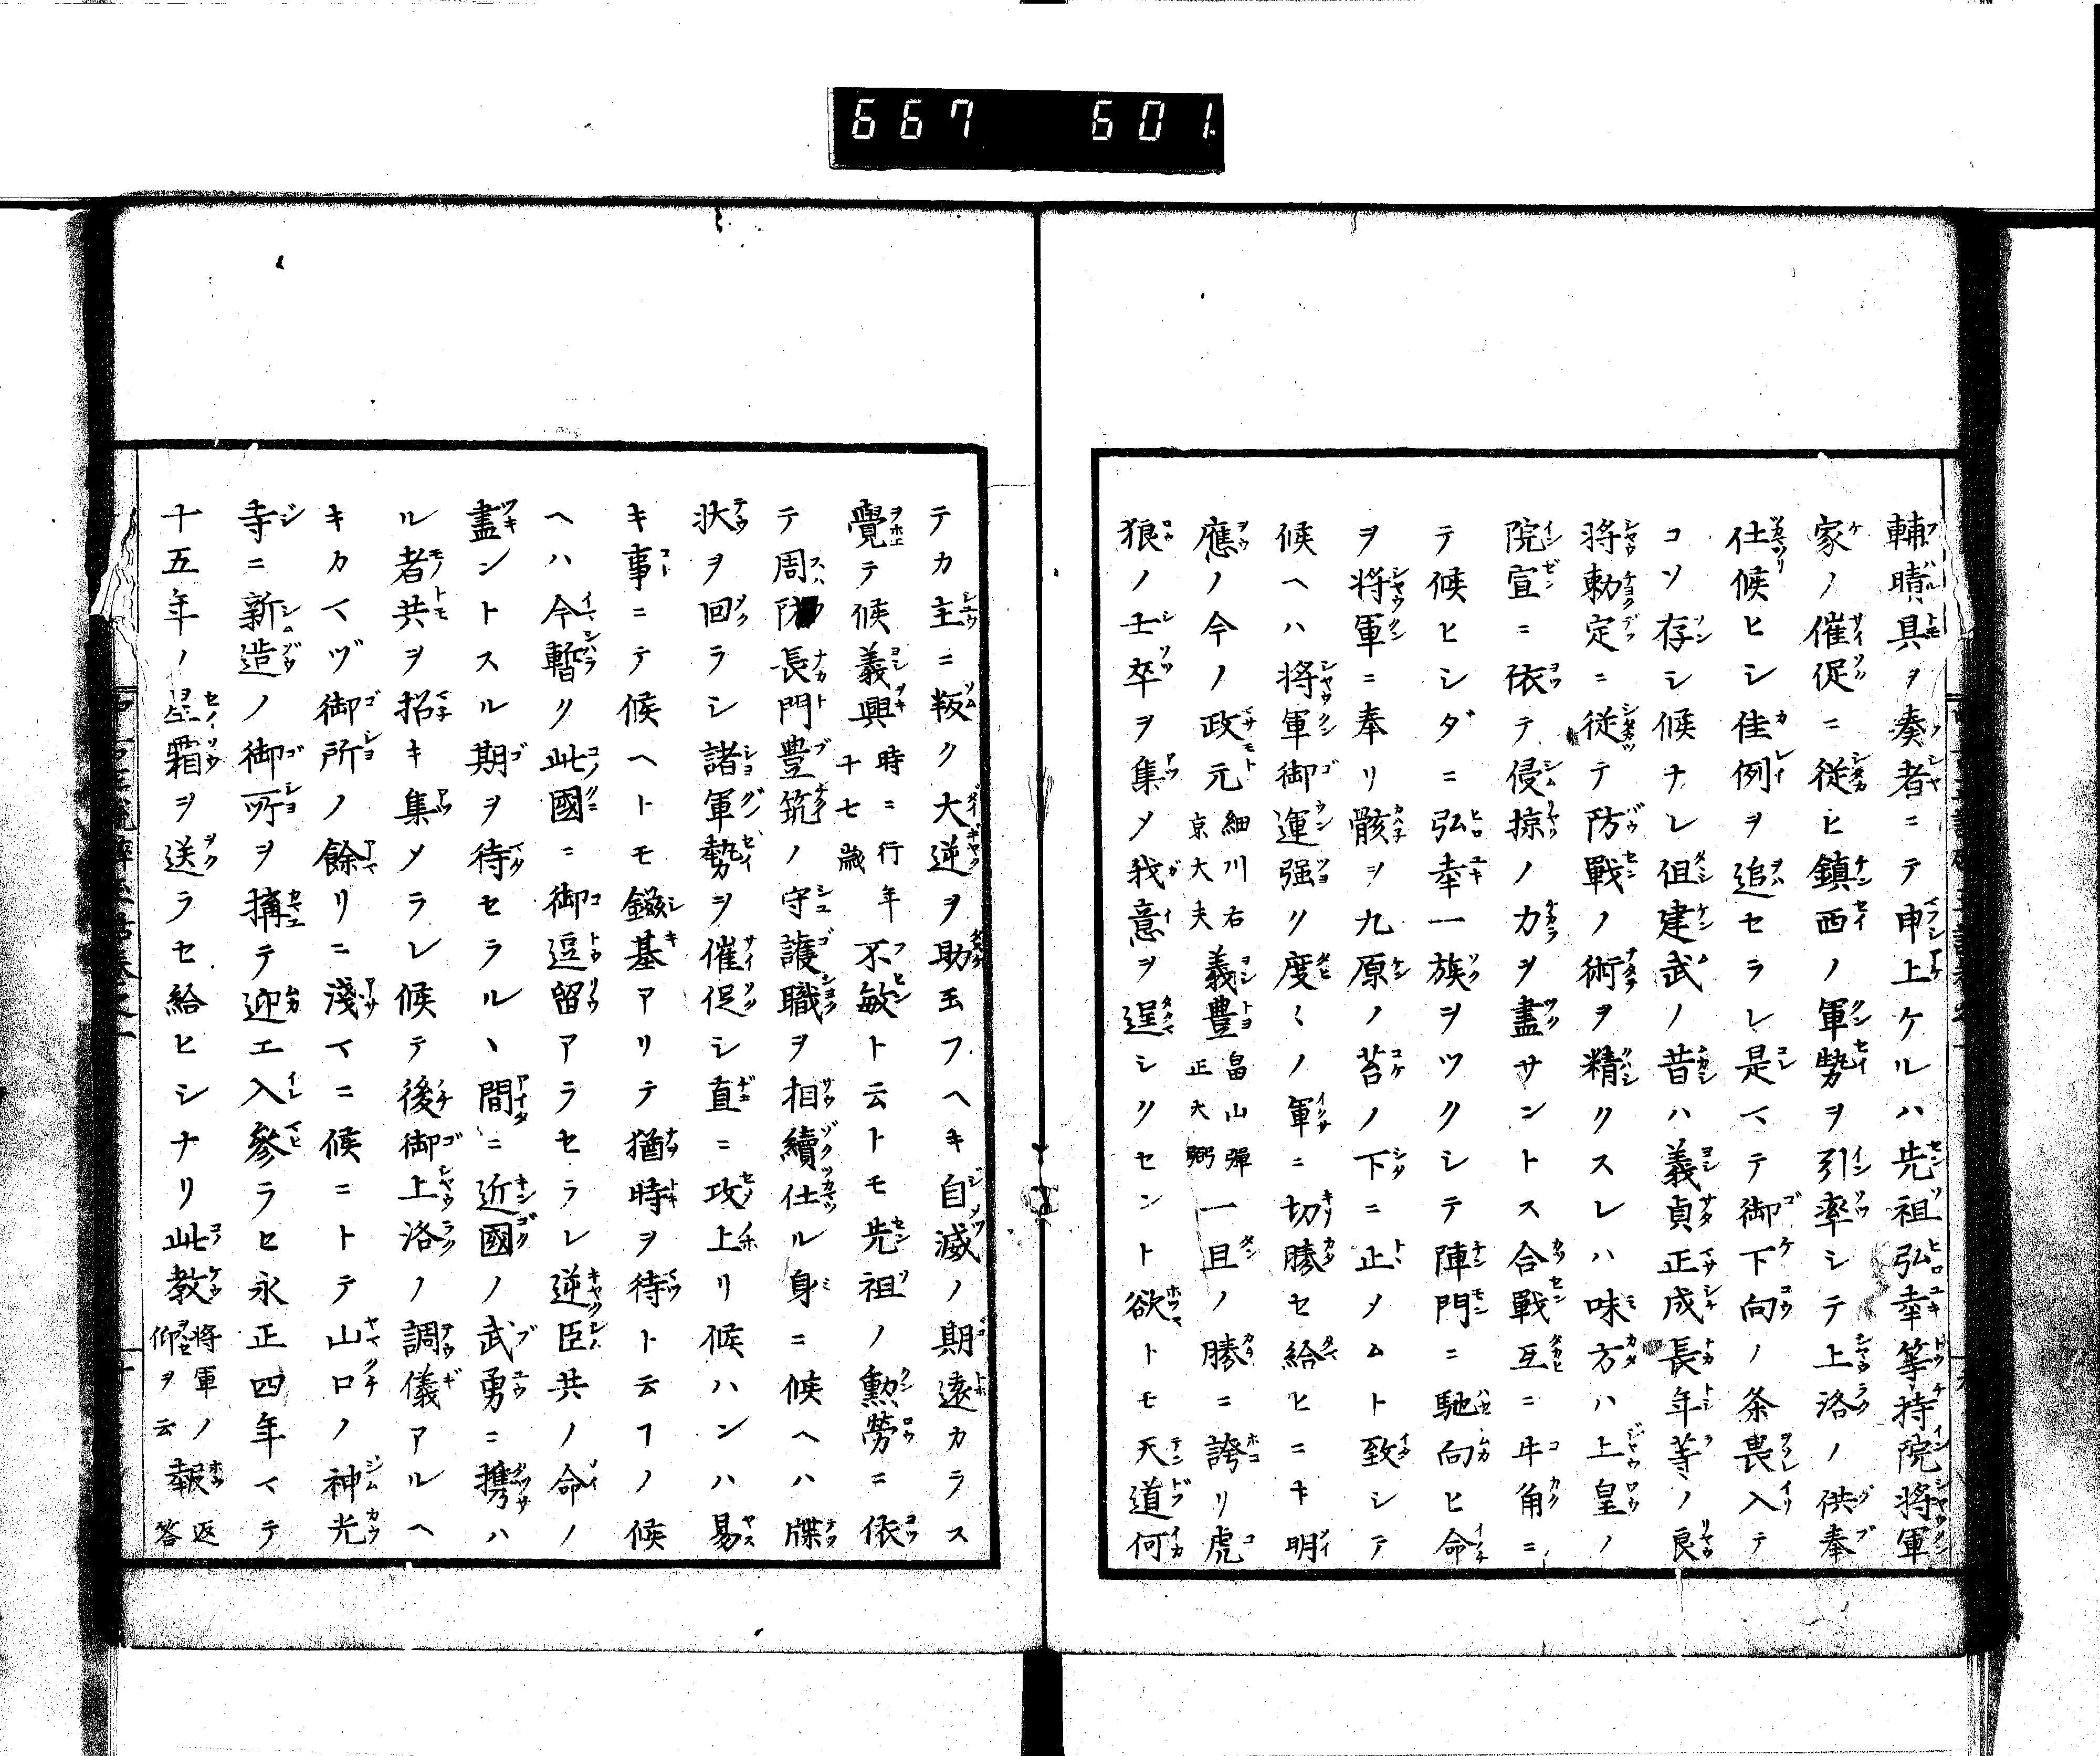 667 601
輔晴具ヲ奏者ニテ申上ケルハ先祖弘幸等持院將軍
家ノ催促ニ従ヒ鎮西ノ軍勢ヲ引率シテ上洛ノ供奉
仕候ヒシ佳例ヲ追セラレ是マテ御下向ノ条畏入テ
コソ存シ候ナレ但建武ノ昔ハ義貞正成長年等ノ良
将勅定ニ従テ防戰ノ術ヲ精クスレハ味方ハ上皇ノ
院宣ニ依テ侵掠ノ力ヲ盡サントス合戰互ニ牛角ニ
テ候ヒシダニ弘幸一族ヲツクシテ陣門ニ馳向ヒ命
ヲ将軍ニ奉リ骸ヲ九原ノ苔ノ下ニ止メムト致シテ
候ヘハ將軍御運强ク度〻ノ軍ニ切勝セ給ヒニキ明
應ノ今ノ政元細川右京大夫義豊畠山彈正大弼一旦ノ勝ニ誇リ虎
狼ノ士卒ヲ集メ我意ヲ逞シクセント欲トモ天道何
テカ主ニ叛ク大逆ヲ助玉フヘキ自滅ノ期遠カラス
覺テ候義興時ニ行年十七歳不敏ト云トモ先祖ノ勲勞ニ依
テ周防長門豊筑ノ守護職ヲ相續仕ル身ニ候ヘハ牒
状ヲ回ラシ諸軍勢ヲ催促シ直ニ攻上リ候ハンハ易
キ事ニテ候ヘトモ鎡基アリテ猶時ヲ待ト云フノ候
ヘハ今暫ク此國ニ御逗留アラセラレ逆臣共ノ命ノ
盡ントスル期ヲ待セラルヽ間ニ近國ノ武勇ニ携ハ
ル者共ヲ招キ集メラレ候テ後御上洛ノ調儀アルヘ
キカマヅ御所ノ餘リニ淺マニ候ニトテ山口ノ神光
寺ニ新造ノ御所ヲ搆テ迎エ入參ラセ永正四年マテ
十五年ノ星霜ヲ送ラセ給ヒシナリ此教將軍ノ仰ヲ云報返答